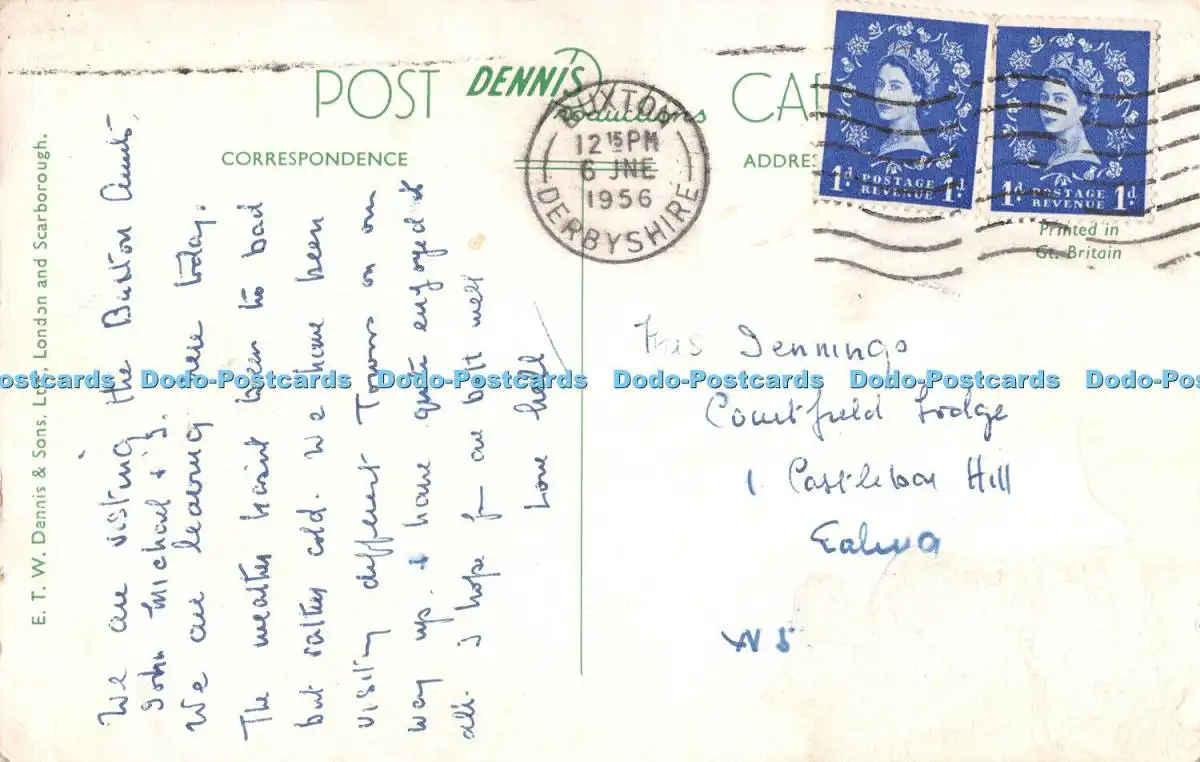 POST DENNIS Productions CA
CORRESPONDENCE
ADDRES
BUXTON
12 15 PM
6 JNE
1956
DERBYSHIRE
1d. POSTAGE REVENUE 1d.
1d. POSTAGE REVENUE 1d.
Printed in
Gt. Britain
E. T. W. Dennis & Sons. Ltd., London and Scarborough.
We are visiting the Buxton Aunt,
John Michael & I.
We are leaving here today.
The weather hasnt been to bad
but rather cold. We have been
visiting different Towns on our
way up. & have quite enjoyed it
all. I hope you are both well
Love
Jennings
Courtfield Lodge
1 Castlebar Hill
Ealing
W 5.
Dodo-Postcards Dodo-Postcards Dodo-Postcards Dodo-Postcards Dodo-Postcards Dodo-Postcards